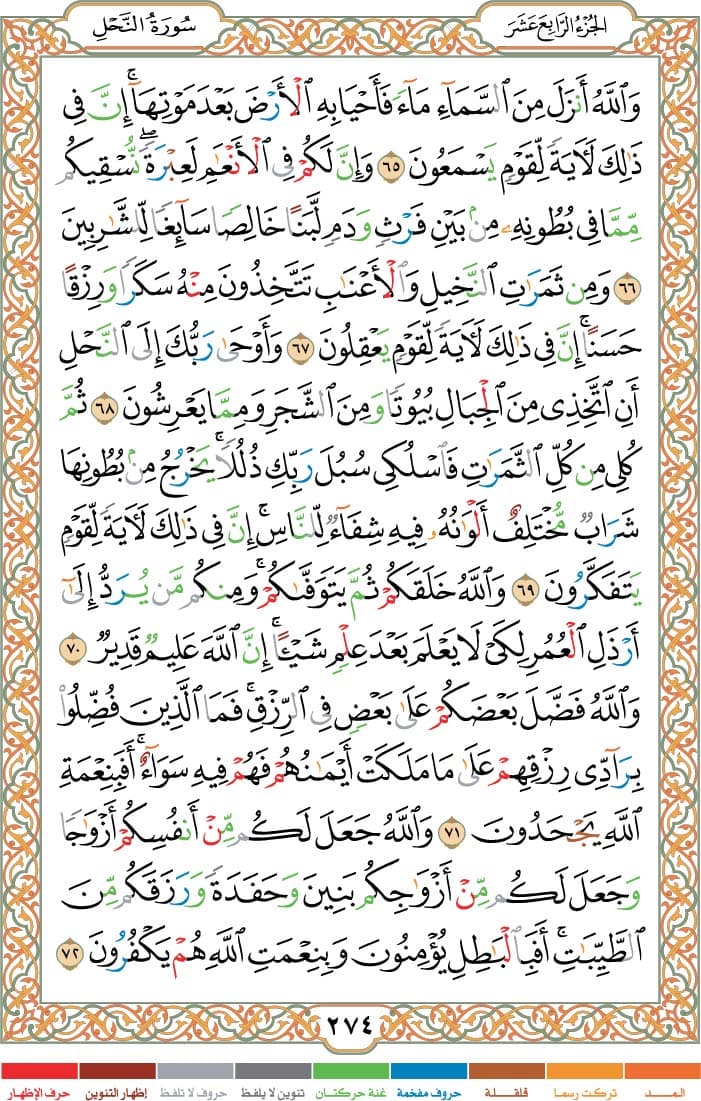 سُورَةُ النَّحْلِ
الجُزْءُ الرَّابِعَ عَشَرَ
وَٱللَّهُ أَنزَلَ مِنَ ٱلسَّمَآءِ مَآءٗ فَأَحۡيَا بِهِ ٱلۡأَرۡضَ بَعۡدَ مَوۡتِهَآۚ إِنَّ فِي
ذَٰلِكَ لَأٓيَةٗ لِّقَوۡمٖ يَسۡمَعُونَ ٦٥ وَإِنَّ لَكُمۡ فِي ٱلۡأَنۡعَٰمِ لَعِبۡرَةٗۖ نُّسۡقِيكُم
مِّمَّا فِي بُطُونِهِۦ مِنۢ بَيۡنِ فَرۡثٖ وَدَمٖ لَّبَنًا خَالِصٗا سَآئِغٗا لِّلشَّٰرِبِينَ
٦٦ وَمِن ثَمَرَٰتِ ٱلنَّخِيلِ وَٱلۡأَعۡنَٰبِ تَتَّخِذُونَ مِنۡهُ سَكَرٗا وَرِزۡقًا
حَسَنًاۚ إِنَّ فِي ذَٰلِكَ لَأٓيَةٗ لِّقَوۡمٖ يَعۡقِلُونَ ٦٧ وَأَوۡحَىٰ رَبُّكَ إِلَى ٱلنَّحۡلِ
أَنِ ٱتَّخِذِي مِنَ ٱلۡجِبَالِ بُيُوتٗا وَمِنَ ٱلشَّجَرِ وَمِمَّا يَعۡرِشُونَ ٦٨ ثُمَّ
كُلِي مِن كُلِّ ٱلثَّمَرَٰتِ فَٱسۡلُكِي سُبُلَ رَبِّكِ ذُلُلٗاۚ يَخۡرُجُ مِنۢ بُطُونِهَا
شَرَابٞ مُّخۡتَلِفٌ أَلۡوَٰنُهُۥ فِيهِ شِفَآءٞ لِّلنَّاسِۚ إِنَّ فِي ذَٰلِكَ لَأٓيَةٗ لِّقَوۡمٖ
يَتَفَكَّرُونَ ٦٩ وَٱللَّهُ خَلَقَكُمۡ ثُمَّ يَتَوَفَّىٰكُمۡۚ وَمِنكُم مَّن يُرَدُّ إِلَىٰٓ
أَرۡذَلِ ٱلۡعُمُرِ لِكَيۡ لَا يَعۡلَمَ بَعۡدَ عِلۡمٖ شَيۡـًٔاۚ إِنَّ ٱللَّهَ عَلِيمٞ قَدِيرٞ ٧٠
وَٱللَّهُ فَضَّلَ بَعۡضَكُمۡ عَلَىٰ بَعۡضٖ فِي ٱلرِّزۡقِۚ فَمَا ٱلَّذِينَ فُضِّلُواْ
بِرَآدِّي رِزۡقِهِمۡ عَلَىٰ مَا مَلَكَتۡ أَيۡمَٰنُهُمۡ فَهُمۡ فِيهِ سَوَآءٌۚ أَفَبِنِعۡمَةِ
ٱللَّهِ يَجۡحَدُونَ ٧١ وَٱللَّهُ جَعَلَ لَكُم مِّنۡ أَنفُسِكُمۡ أَزۡوَٰجٗا
وَجَعَلَ لَكُم مِّنۡ أَزۡوَٰجِكُم بَنِينَ وَحَفَدَةٗ وَرَزَقَكُم مِّنَ
ٱلطَّيِّبَٰتِۚ أَفَبِٱلۡبَٰطِلِ يُؤۡمِنُونَ وَبِنِعۡمَتِ ٱللَّهِ هُمۡ يَكۡفُرُونَ ٧٢
٢٧٤
المـــد تركت رسما قلقـلـة حروف مفخمة غنة حركتان تنوين لا يلفظ حروف لا تلفظ إظهار التنوين حرف الإظهار